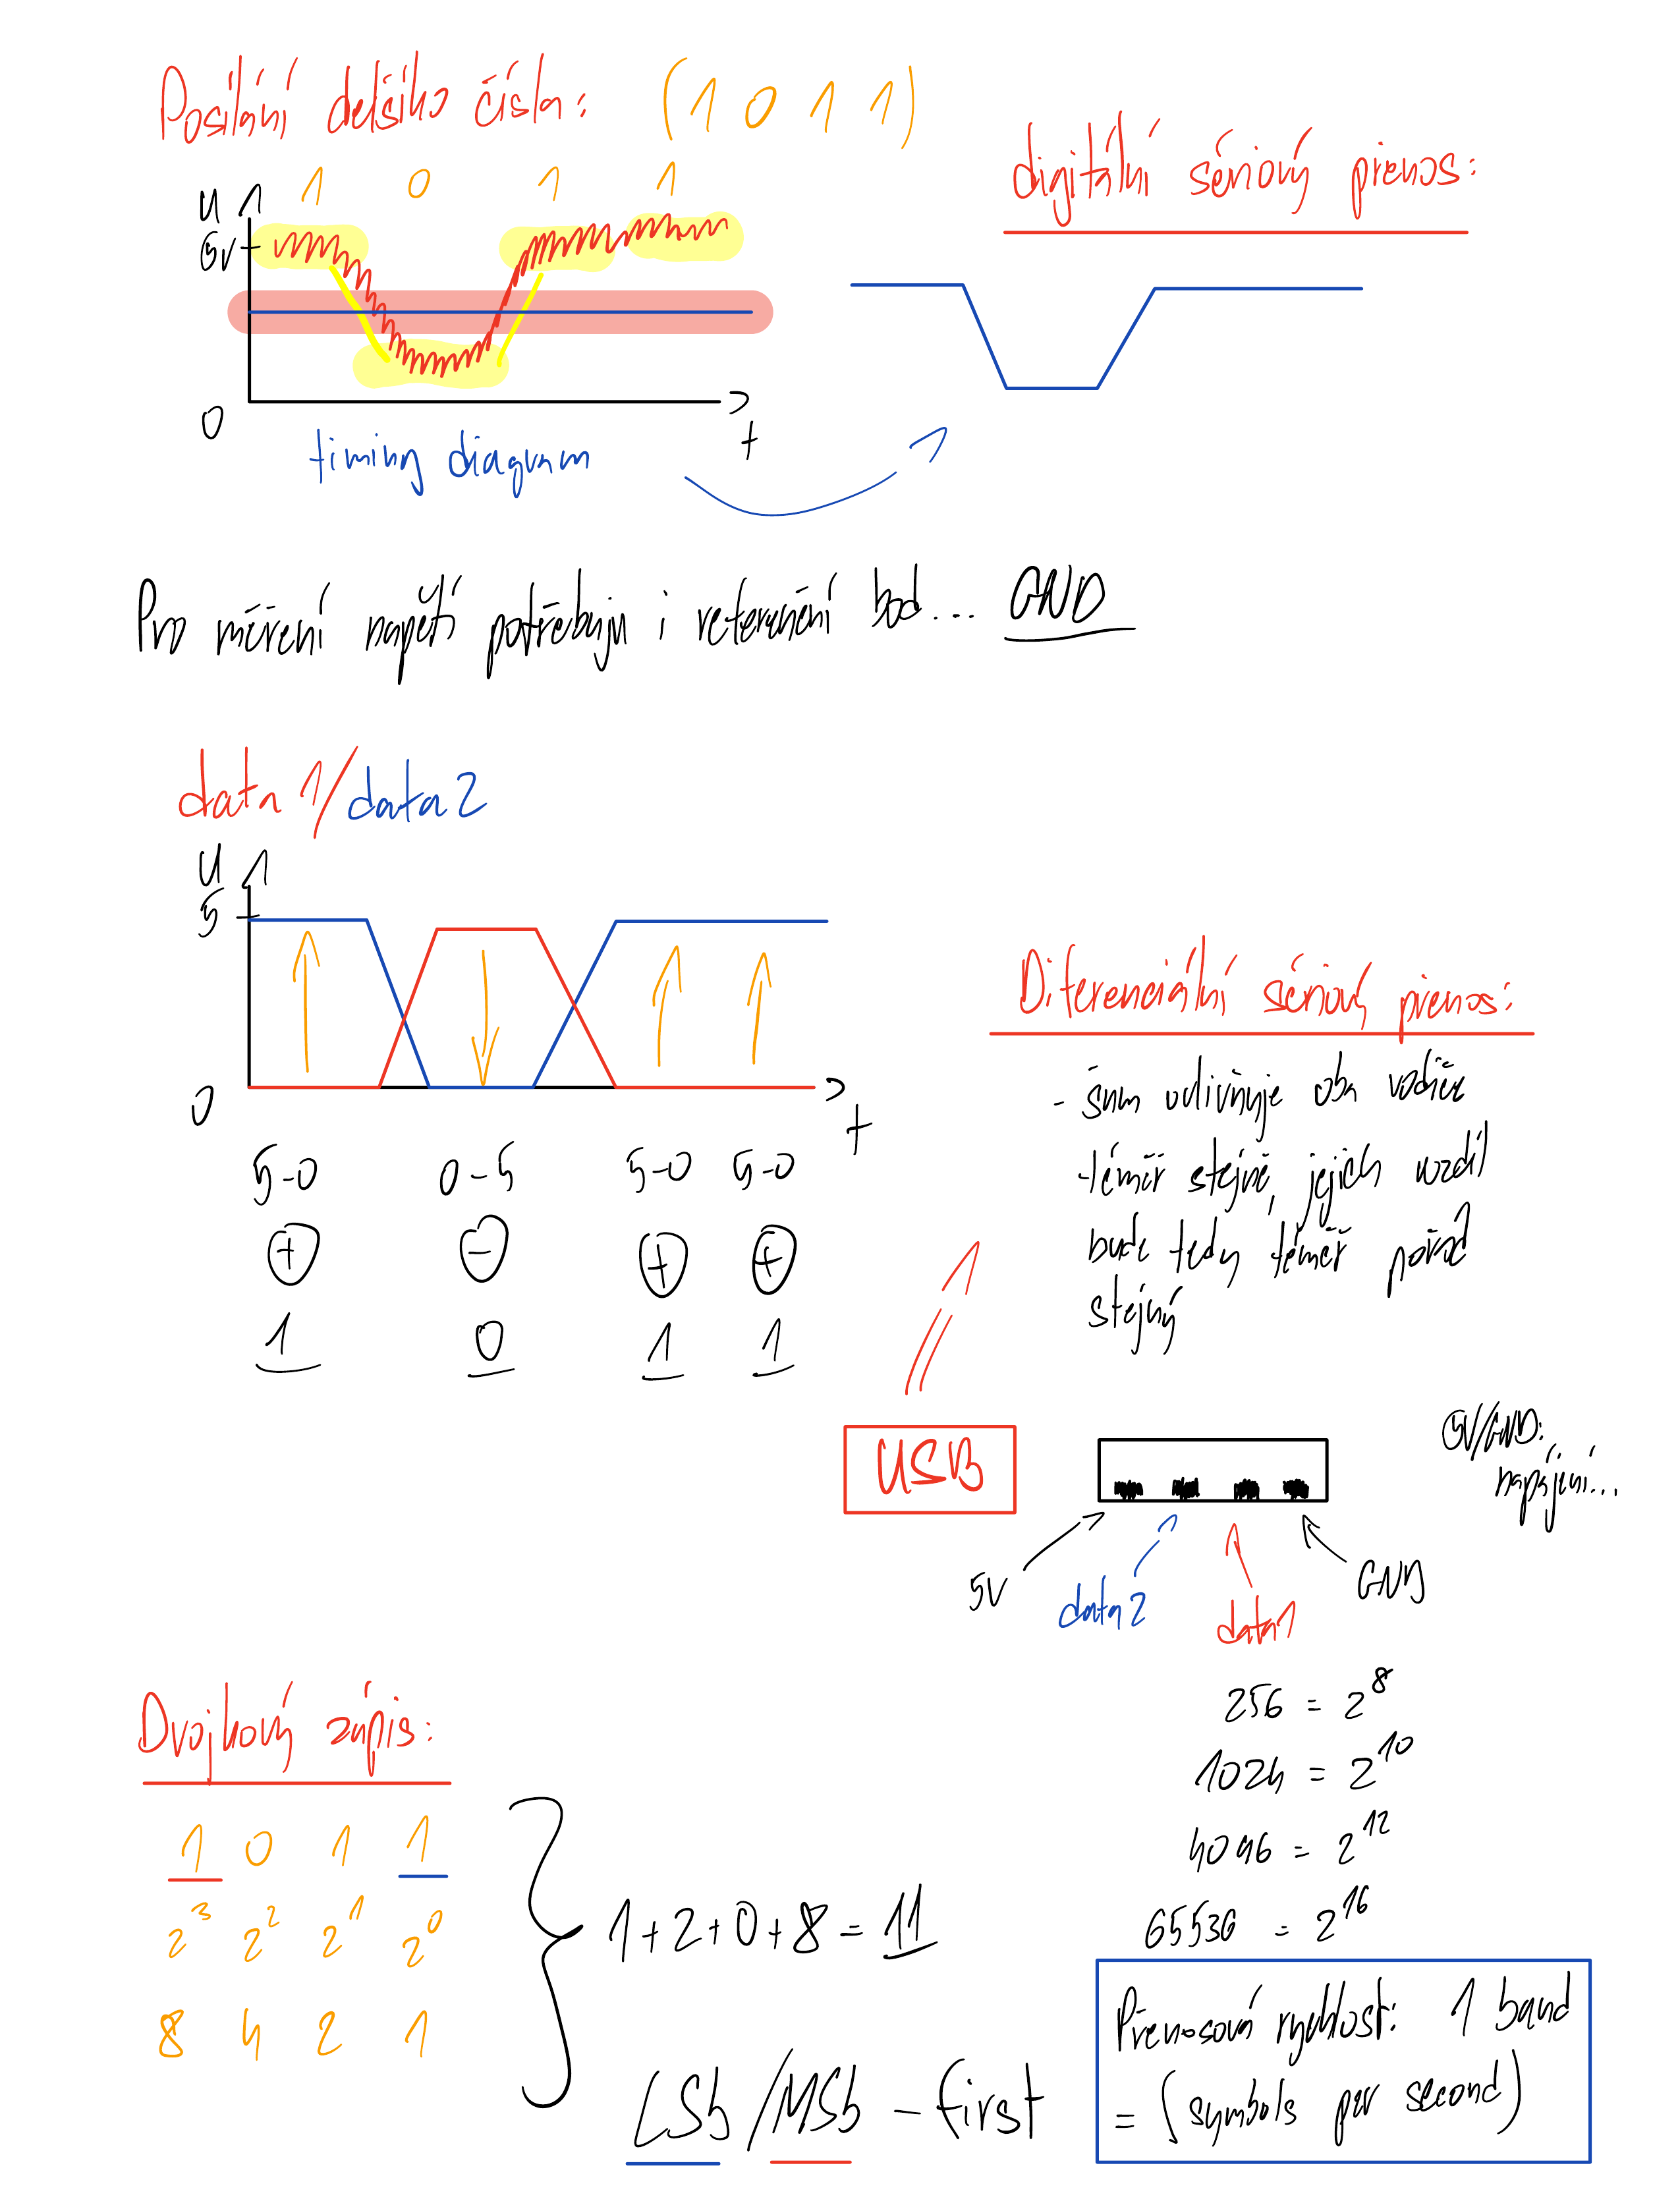 Posílání delšího čísla: (1 0 1 1)
1 0 1 1
digitální sériový přenos:
U
5V
0
t
timing diagram
Pro měření napětí potřebuju i referenční bod... GND
data 1/data 2
U
5
0
t
5-0 0-5 5-0 5-0
+ - + +
1 0 1 1
Diferenciální sériový přenos:
- šum ovlivňuje oba vodiče
- téměř stejně, jejich rozdíl
bude tedy téměř pořád
stejný
USB
5V/GND:
napájení...
5V
data 2
data 1
GND
Dvojkový zápis:
1 0 1 1
2^3 2^2 2^1 2^0
8 4 2 1
1+2+0+8=11
LSb/MSb - first
256 = 2^8
1024 = 2^10
4096 = 2^12
65536 = 2^16
Přenosová rychlost: 1 baud
= (symbols per second)